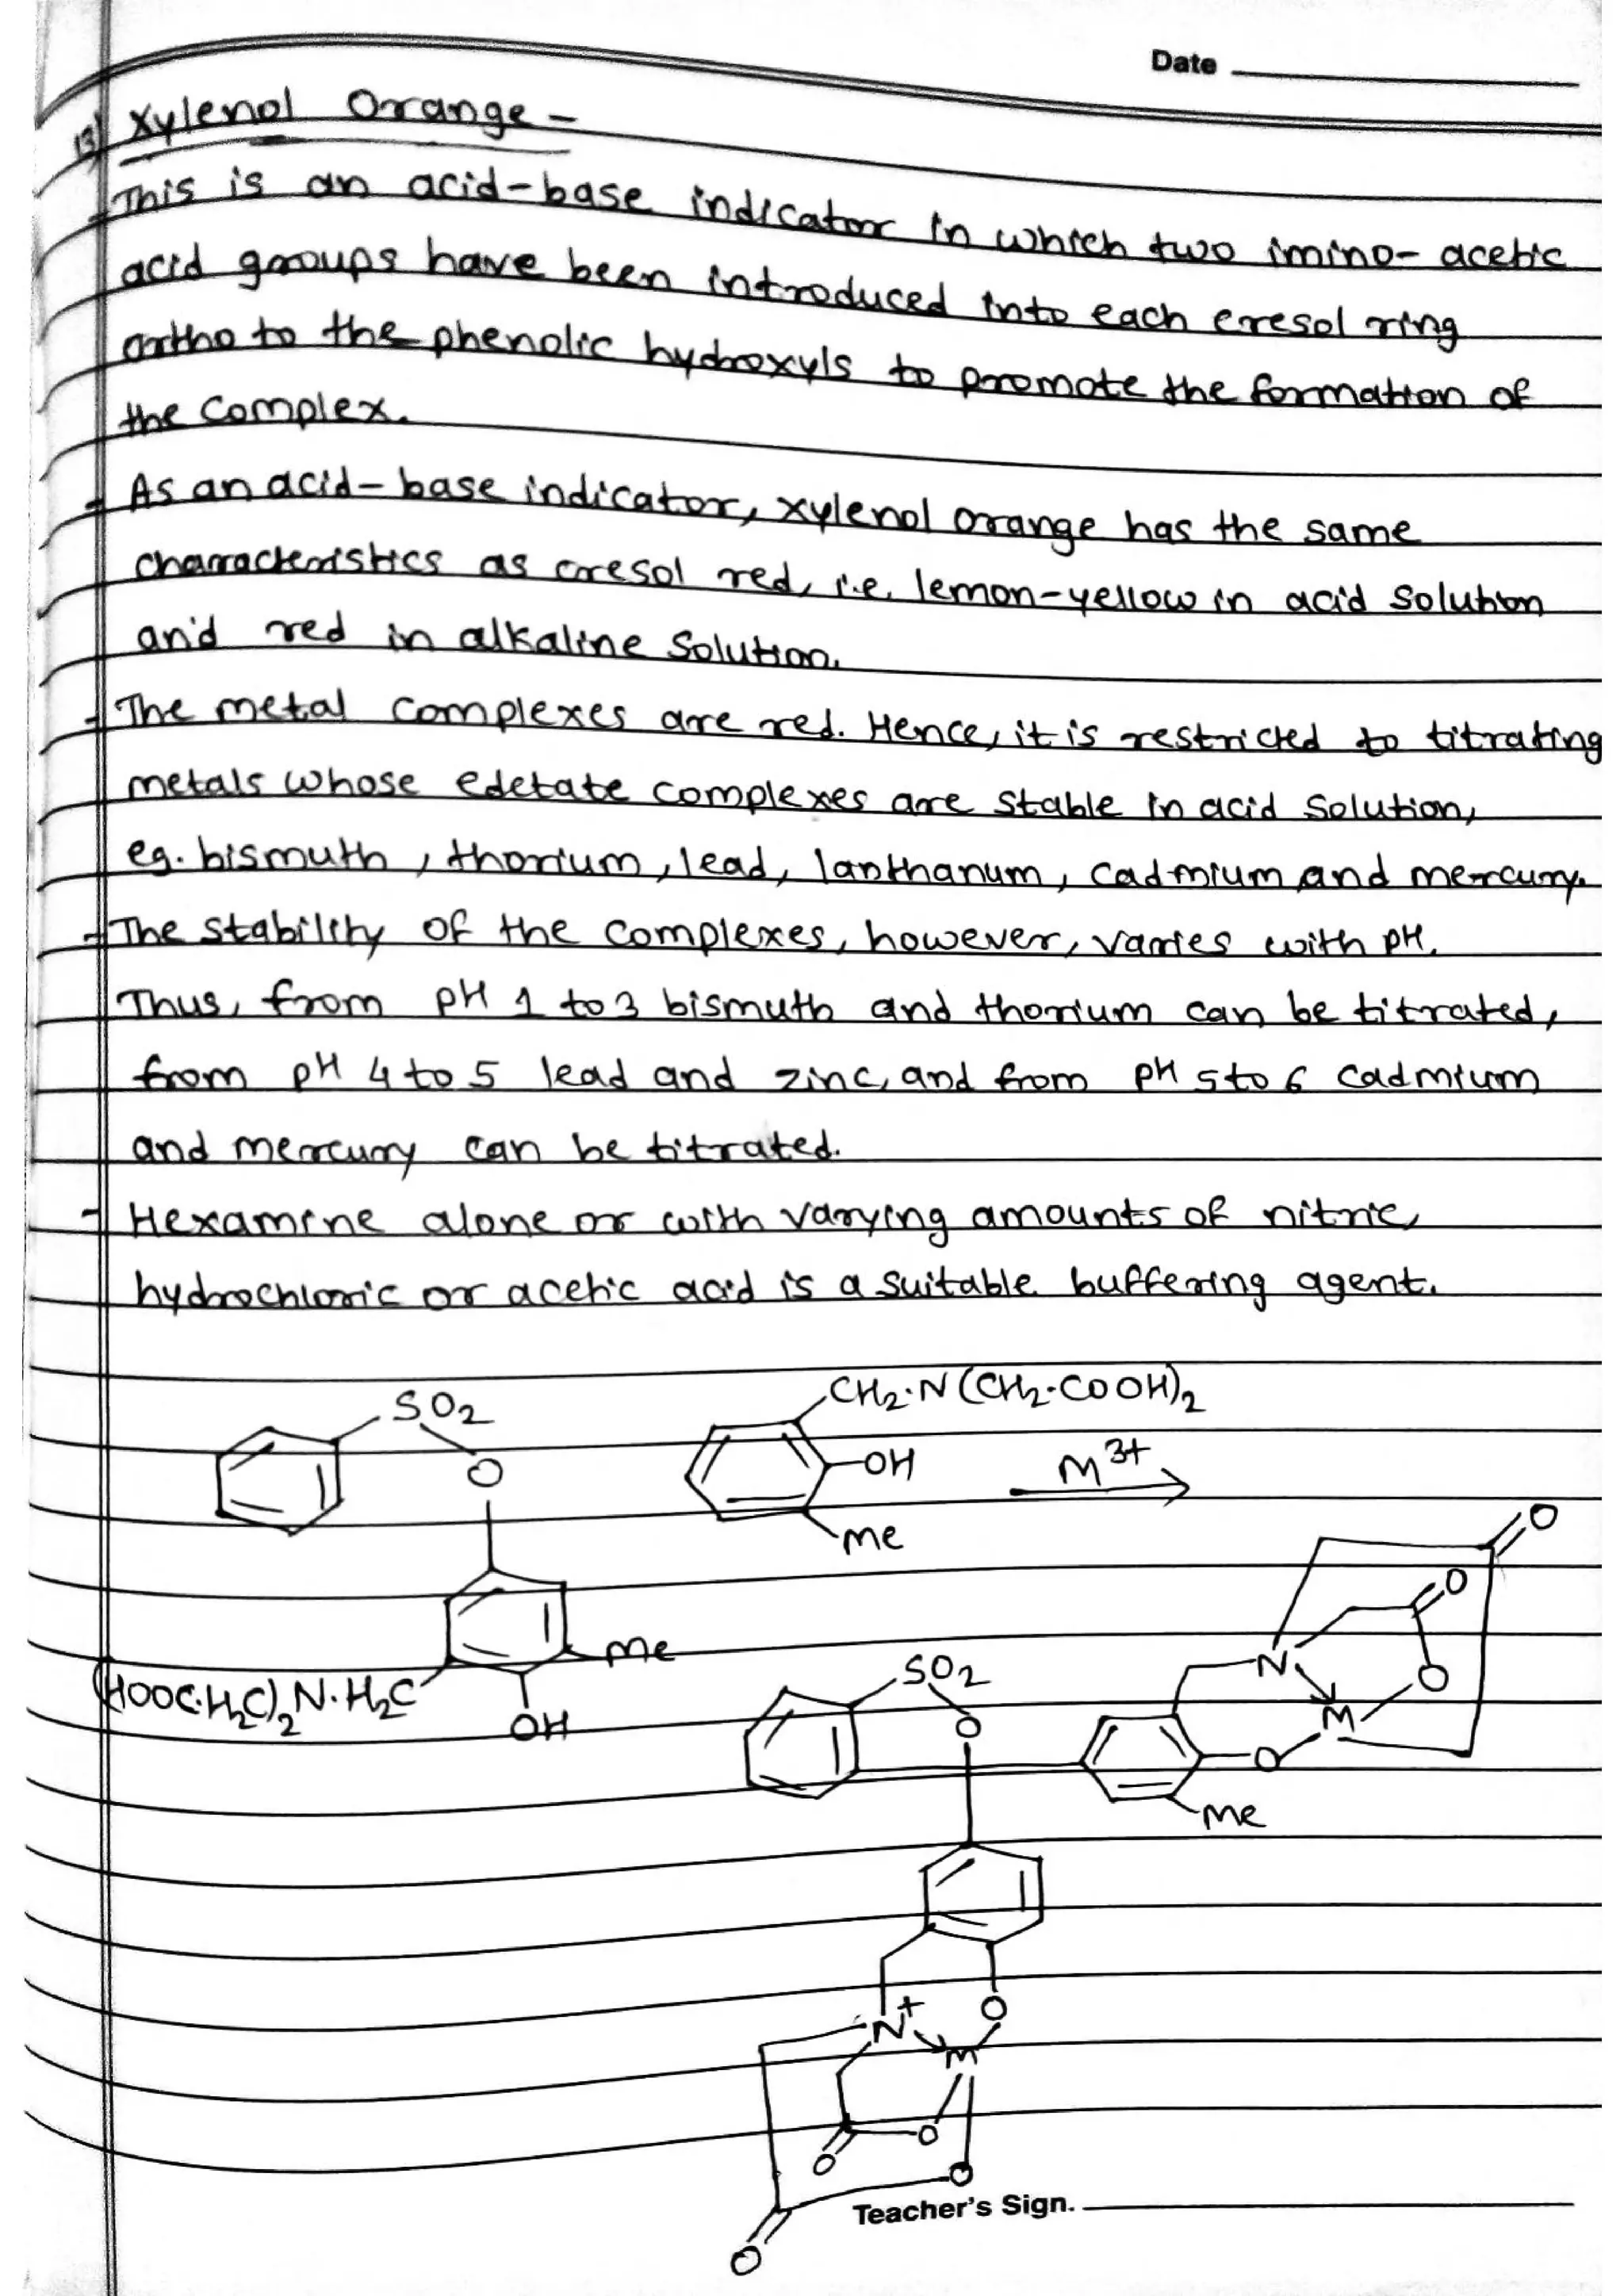 Date
13) Xylenol Orange -
- This is an acid-base indicator in which two imino- acetic
acid groups have been introduced into each cresol ring
ortho to the phenolic hydroxyls to promote the formation of
the complex.
- As an acid-base indicator, xylenol orange has the same
characteristics as cresol red, i.e. lemon-yellow in acid solution
and red in alkaline solution.
- The metal complexes are red. Hence, it is restricted to titrating
metals whose edetate complexes are stable in acid solution,
eg. bismuth, thorium, lead, lanthanum, cadmium and mercury.
- The stability of the complexes, however, varies with pH.
Thus, from pH 1 to 3 bismuth and thorium can be titrated,
from pH 4 to 5 lead and zinc, and from pH 5 to 6 cadmium
and mercury can be titrated.
- Hexamine alone or with varying amounts of nitric,
hydrochloric or acetic acid is a suitable buffering agent.
CH₂·N(CH₂·COOH)₂
SO₂
O
OH
M³⁺
Me
O
O
Me
N
O
(HOOC·H₂C)₂N·H₂C
SO₂
OH
O
M
O
Me
N⁺
O
M
O
O
O
Teacher's Sign.
O